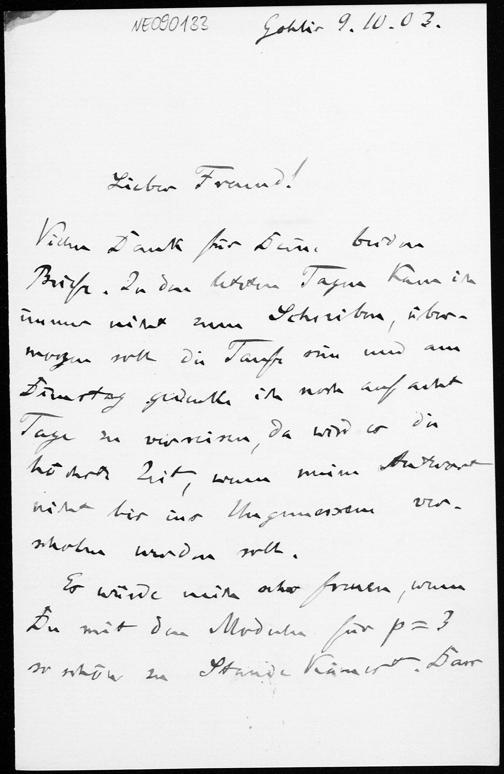 NE090133
Gohlis 9.10.03.
Lieber Freund!
Vielen Dank für Deine beiden
Briefe. In den letzten Tagen kam ich
immer nicht zum Schreiben, über-
morgen soll die Taufe sein und am
Dienstag gedenke ich noch auf acht
Tage zu verreisen, da wird es die
höchste Zeit, wenn meine Antwort
nicht bis ins Ungemessene ver-
schoben werden soll.
Es würde mich sehr freuen, wenn
Du mit den Moduln für p = 3
so schön zu Stande kämest. Dass